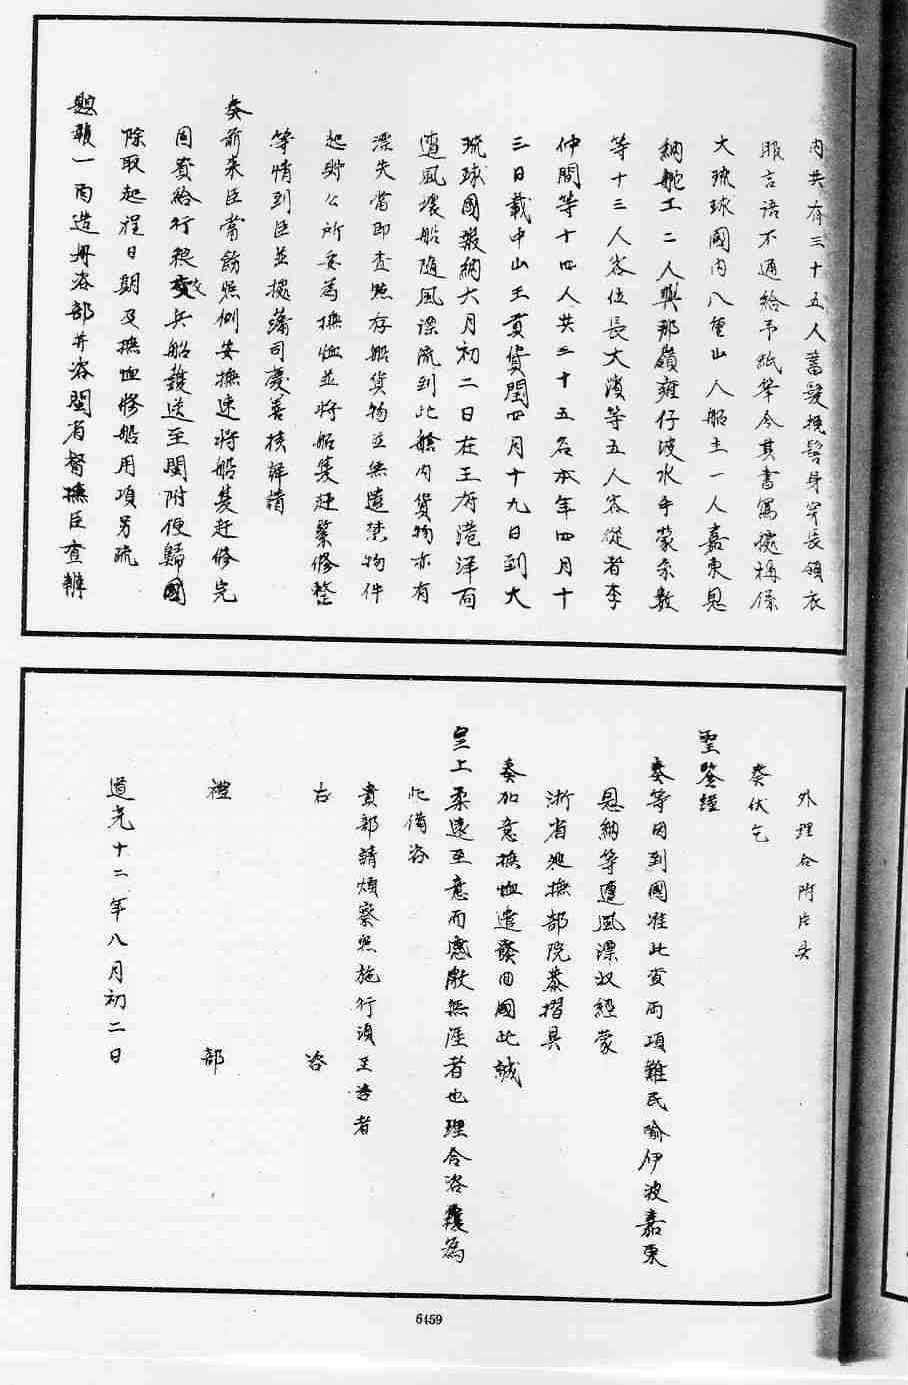 內共有三十五人蓄髮挽髻身穿長領衣
服言語不通給予紙筆令其書寫據稱係
大琉球國內八重山人船主一人嘉東恩
納舵工二人與那嶺雍仔波水手蒙系數
等十三人客位長大濱等五人客從者李
仲間等十四人共三十五名本年四月十
三日載中山王貢貨閏四月十九日到大
琉球國繳納六月初二日在王府港洋面
遭風壞船隨風漂流到此艙內貨物亦有
漂失當即查照存船貨物並無違禁物件
起貯公所妥為撫恤並將船隻趕緊修整
等情到臣並據藩司慶善核詳請
奏前來臣當飭照例安撫速將船隻趕修完
固資給行糧交兵船護送至閩附便歸國
除取起程日期及撫恤修船用項另疏
題報一面造冊咨部并咨閩省督撫臣查辦
外理合附片具
奏伏乞
聖鑒經
奏等因到國准此資兩項難民喻伊波嘉東
恩納等遭風漂收經蒙
浙省巡撫部院恭摺具
奏加意撫恤遣發回國此誠
皇上柔遠至意而感戴無涯者也理合咨覆為
此備咨
貴部請煩察照施行須至咨者
右咨
禮部
道光十二年八月初二日
6459